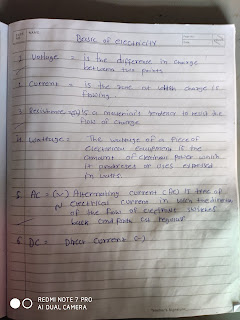 Basic of electricity
1. Voltage = is the difference in charge
between two points
2. Current = is the rate at which charge is
flowing
3. Resistance is a material's tendency to resist the
flow of charge
4. Wattage = The wattage of a piece of
electrical equipment is the
amount of electrical power which
it produces or uses expressed
in watts.
5. AC = (~) Alternating current (AC) is type of
electrical current in
of the flow of electrons switches
back and forth at regular
6. DC = Direct current (=)
REDMI NOTE 7 PRO
AI DUAL CAMERA